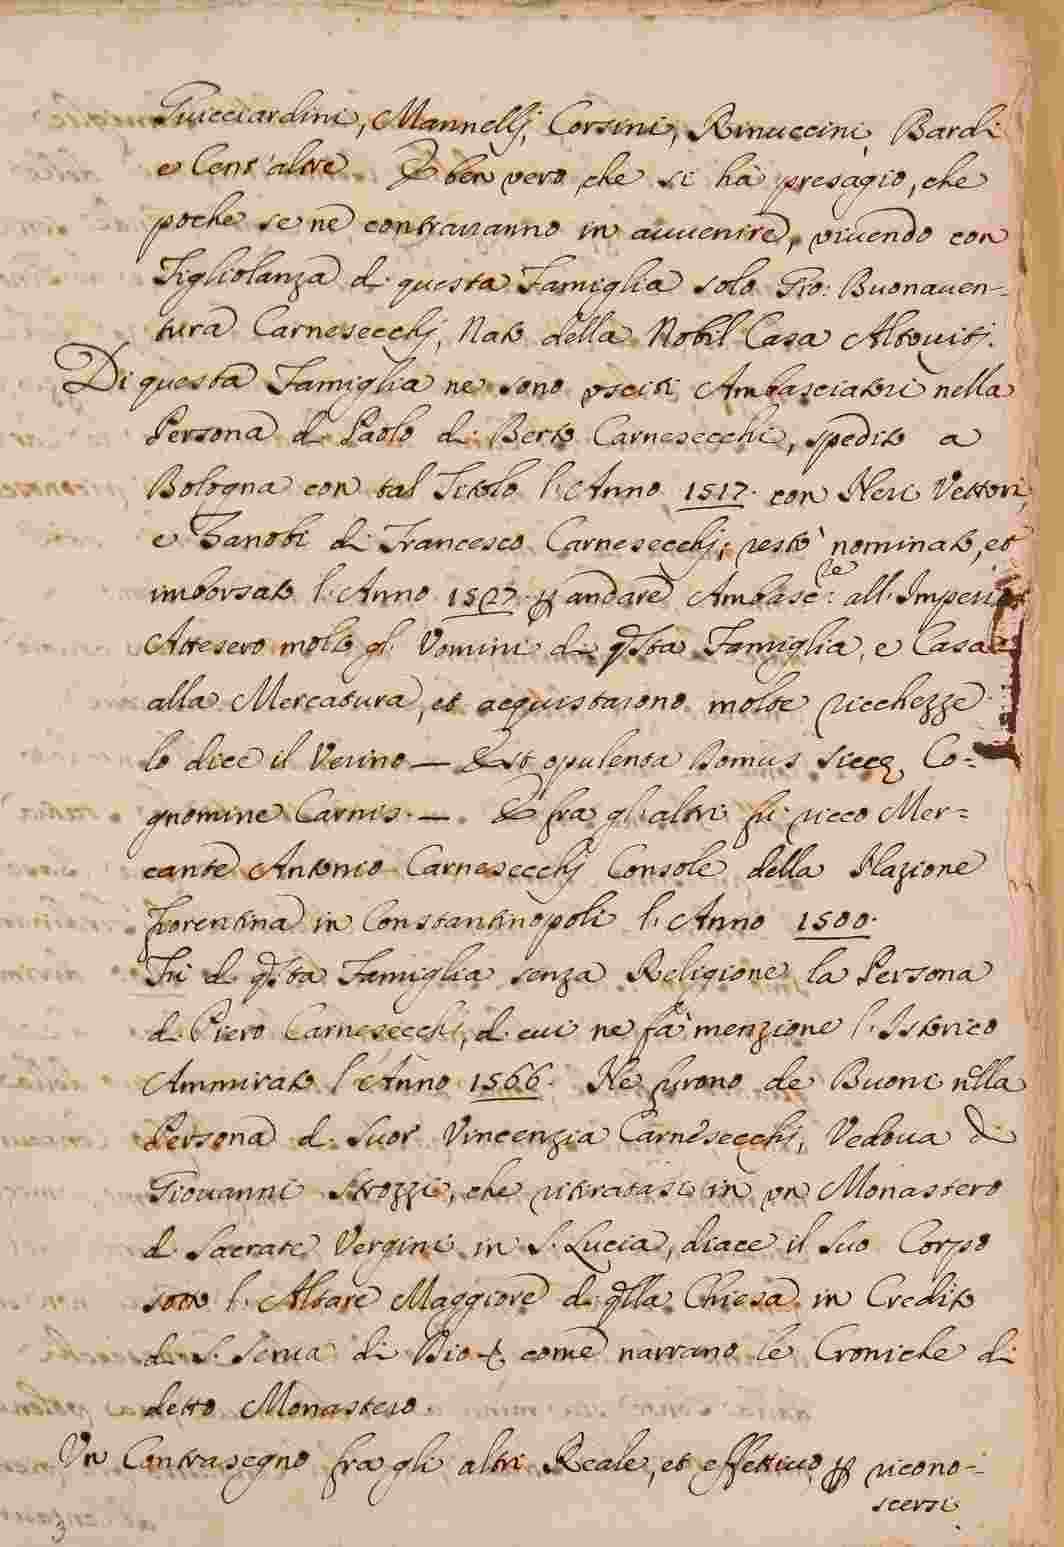 Guicciardini, Mannellj, Corsini, Rinuccini, Bardi
e Cent'altre È ben vero che si hà presagio, che
poche se ne contrarranno in avvenire, vivendo con
Figliolanza di questa Famiglia solo Gio: Buonaven-
tura Carnesecchj, Nato della Nobil Casa Altovitj.
Di questa Famiglia ne sono vsciti Ambasciatori nella
Persona di Paolo di Berto Carnesecchi, spedito a
Bologna con tal Titolo l'Anno 1517. con Neri Vettori,
e Zanobi di Francesco Carnesecchj; restò nominato, et
imborsato l'Anno 1527. p andare Ambasc:re all'Imperio
Attesero molto gl' Vomini di qsta Famiglia, e Casa
alla Mercatura, et acquistarono molte ricchezze
lo dice il Verino — Est opulenta Domus sicce Co-
gnomine Carnis. — E fra gl'altri fù ricco Mer-
cante Antonio Carnesecchj Console della Nazione
Fiorentina in Constantinopoli l'Anno 1500.
Fù di qsta Famiglia senza Religione la Persona
di Piero Carnesecchi, di cui ne fà menzione l'Istorico
Ammirato l'Anno 1566. Ne furono de Buoni nlla
Persona di Suor Vincenzia Carnesecchj, Vedova di
Giovanni Strozzi, che ritiratasi in vn Monastero
di Sacrate Vergini in S. Lucia, diace il suo Corpo
sotto l'Altare Maggiore di qlla Chiesa in Credito
di S. Serva di Dio come narrano le Croniche di
detto Monastero.
Vn Contrasegno fra gli altri Reale, et effettivo p ricono-
scersi